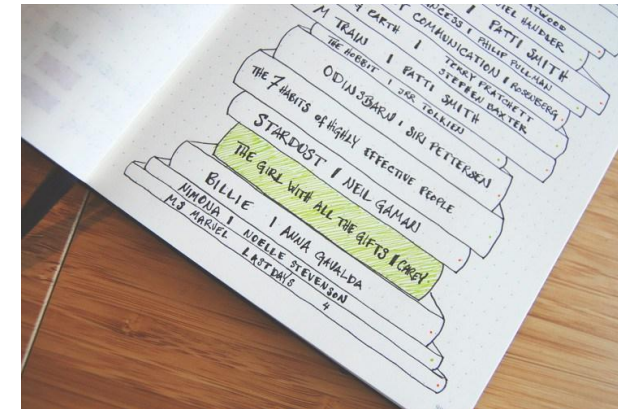 ATWOOD
HANDLER
| PATTI SMITH
| PHILIP PULLMAN
COMMUNICATION | ROSENBERG
EARTH | TERRY PRATCHETT
STEPHEN BAXTER
M TRAIN | PATTI SMITH
THE HOBBIT | JRR TOLKIEN
ODINSBARN | SIRI PETTERSEN
THE 7 HABITS of HIGHLY EFFECTIVE PEOPLE
STARDUST | NEIL GAMAN
THE GIRL WITH ALL THE GIFTS | CAREY
BILLIE | ANNA GAVALDA
NIMONA | NOELLE STEVENSON
MS MARVEL LAST DAYS 4